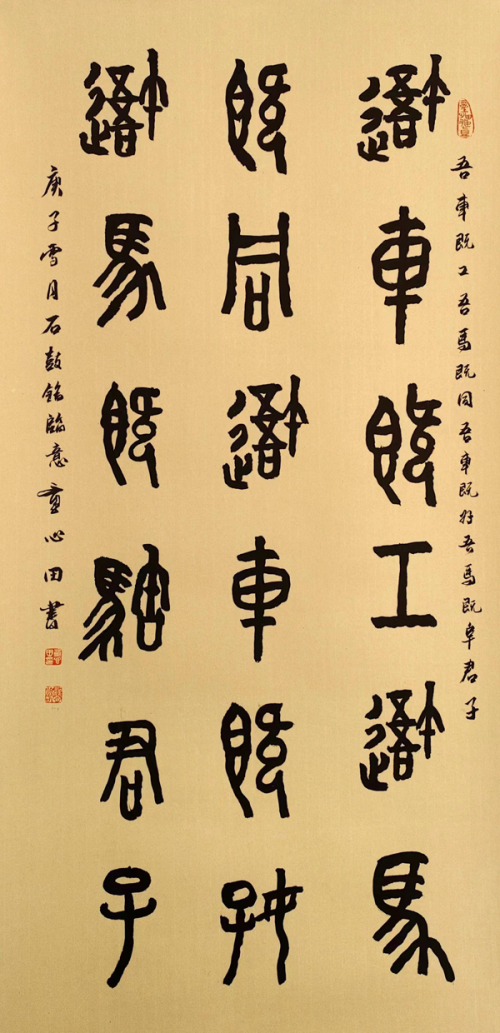 吾車既工吾馬既同吾車既好吾馬既阜君子
吾車既工吾馬
既同吾車既好
吾馬既阜君子
庚子雪月石鼓銘臨意童心田書